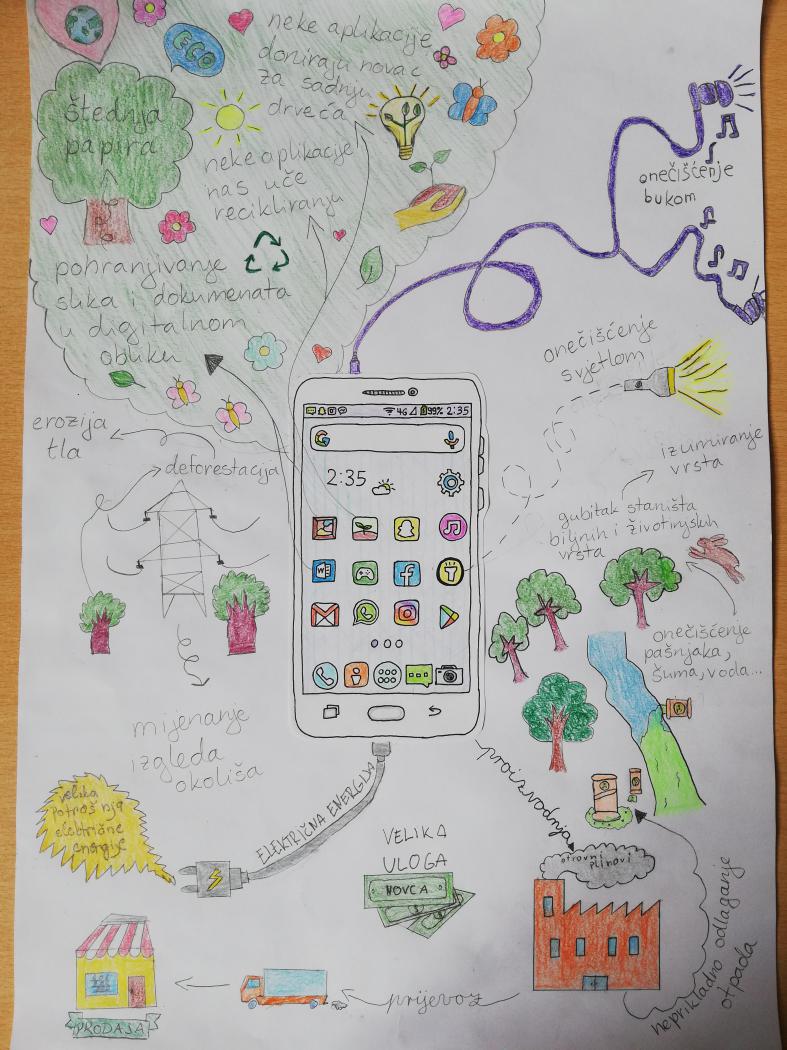 ECO
neke aplikacije
doniraju novac
za sadnju
drveća
štednja
papira
neke aplikacije
nas uče
recikliranju
pohranjivanje
slika i dokumenata
u digitalnom
obliku
onečišćenje
bukom
onečišćenje
svjetlom
erozija
tla
deforestacija
izumiranje
vrsta
gubitak staništa
biljnih i životinjskih
vrsta
4G 99% 2:35
G
2:35
W
f
M
onečišćenje
pašnjaka,
šuma, voda...
mijenanje
izgleda
okoliša
velika
potrošnja
električne
energije
ELEKTRIČNA ENERGIJA
proizvodnja
VELIKA
ULOGA
NOVCA
otrovni
plinovi
neprikladno odlaganje
otpada
prijevoz
PRODAJA